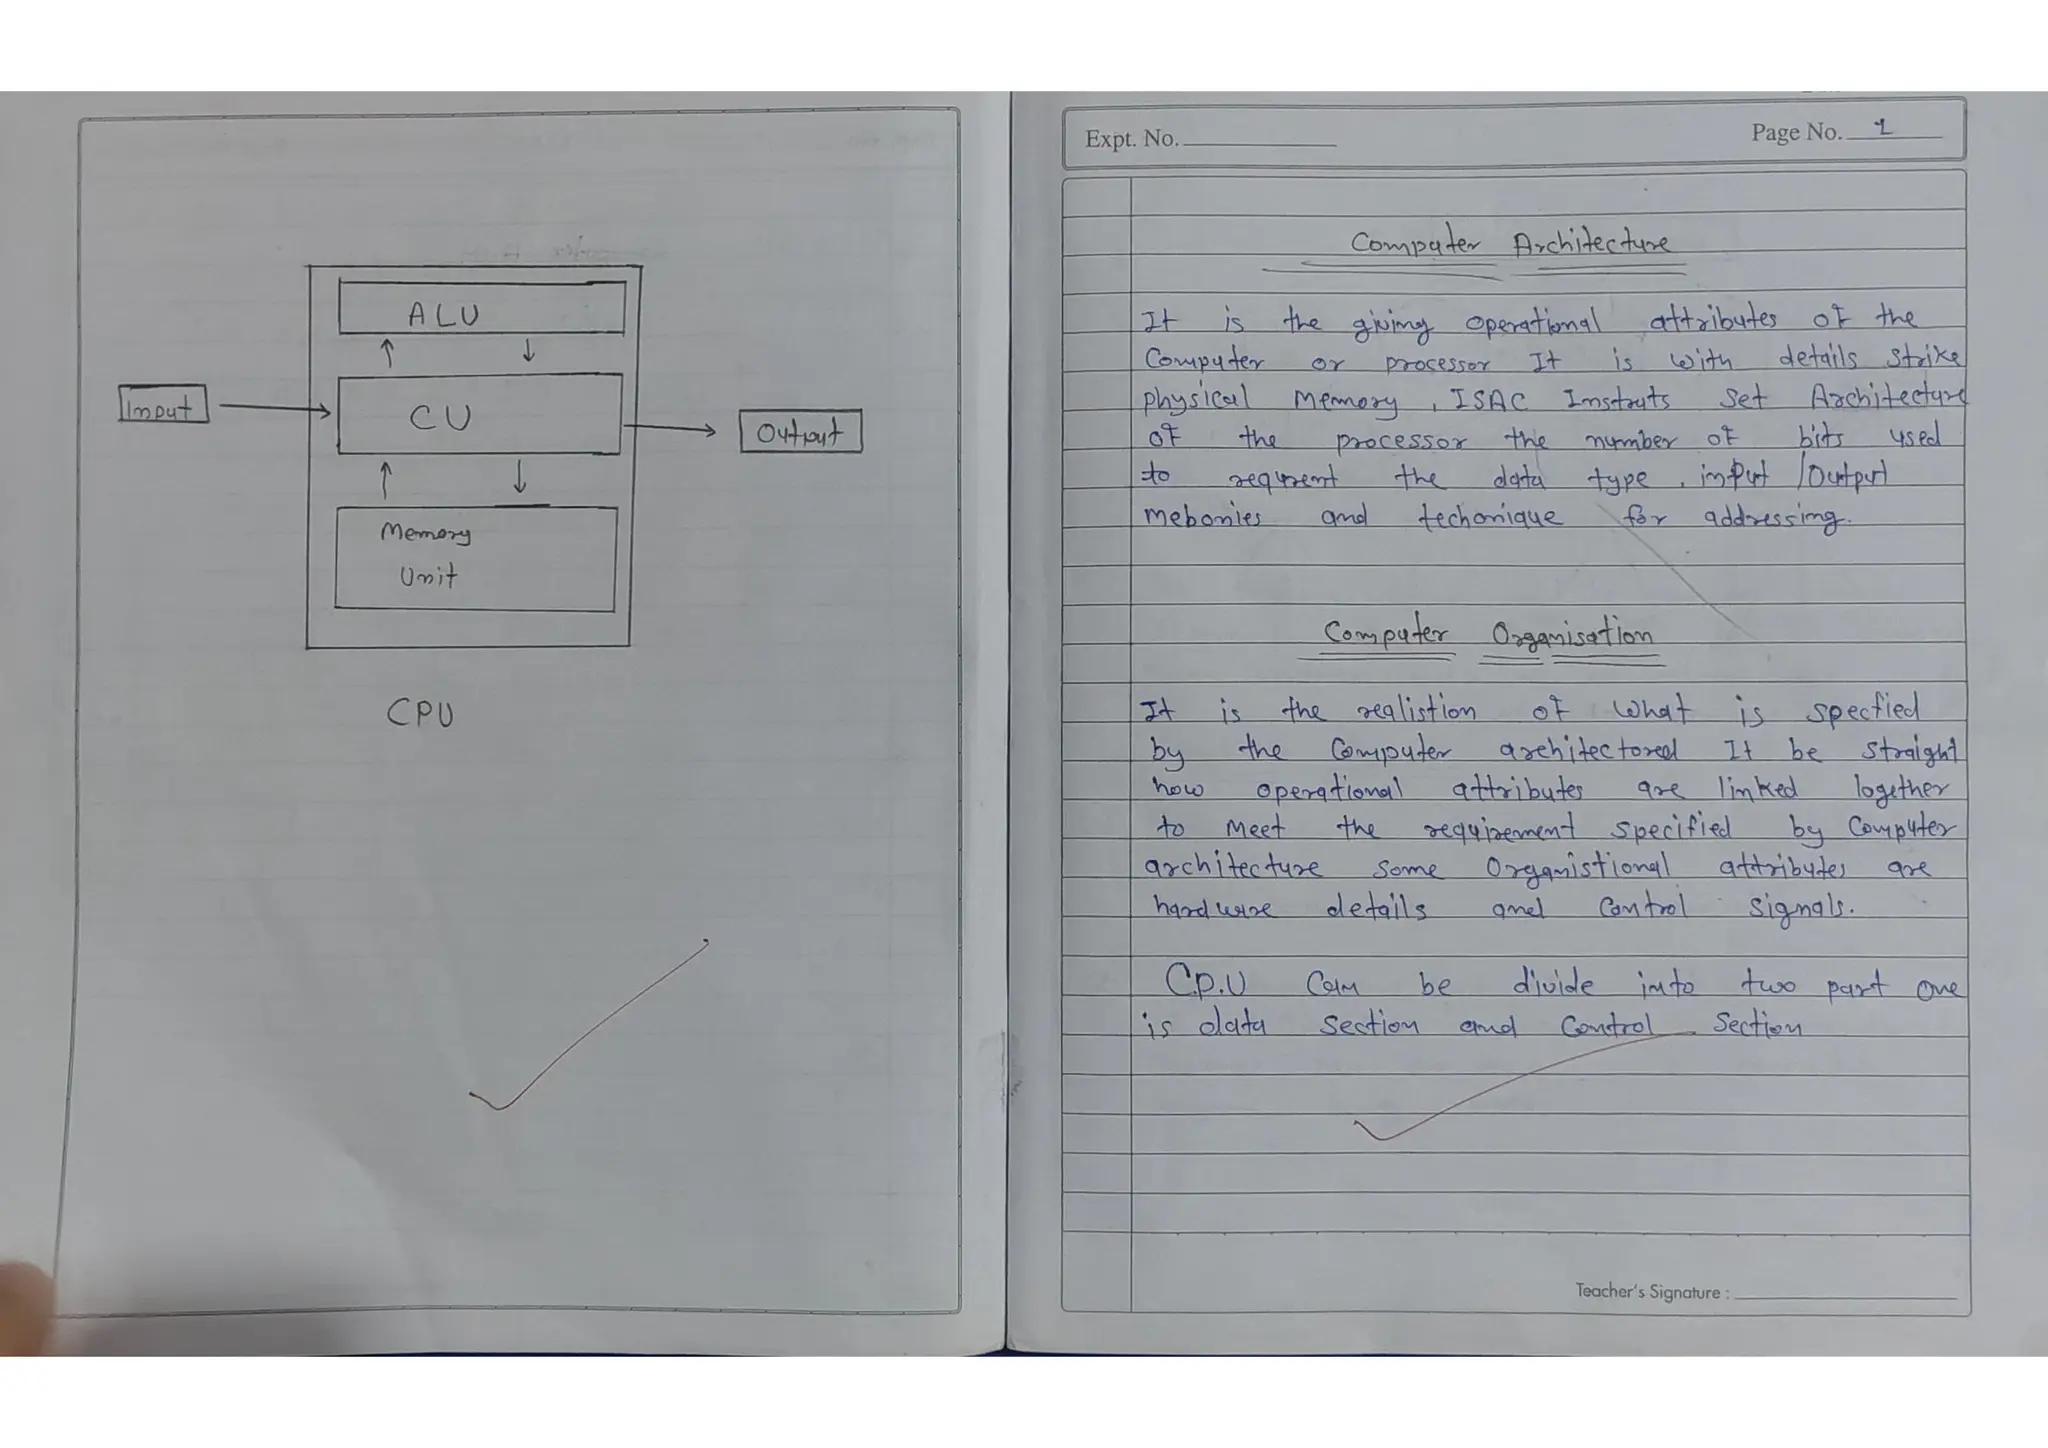 ALU
Input
CU
Output
Memory
Unit
CPU
Expt. No.
Page No. 1
Computer Architecture
It is the giving operational attributes of the
Computer or processor It is with details strike
physical Memory, ISAC Instruts Set Architecture
of the processor the number of bits used
to requrent the data type, input /Output
mebonies and techonique for addressing.
Computer Organisation
It is the realistion of what is specfied
by the Computer architectored It be straight
how operational attributes are linked together
to meet the requirement specified by Computer
architecture some Organistional attributes are
hardware details and Control signals.
C.P.U Can be divide into two part one
is data section and Control Section
Teacher's Signature :